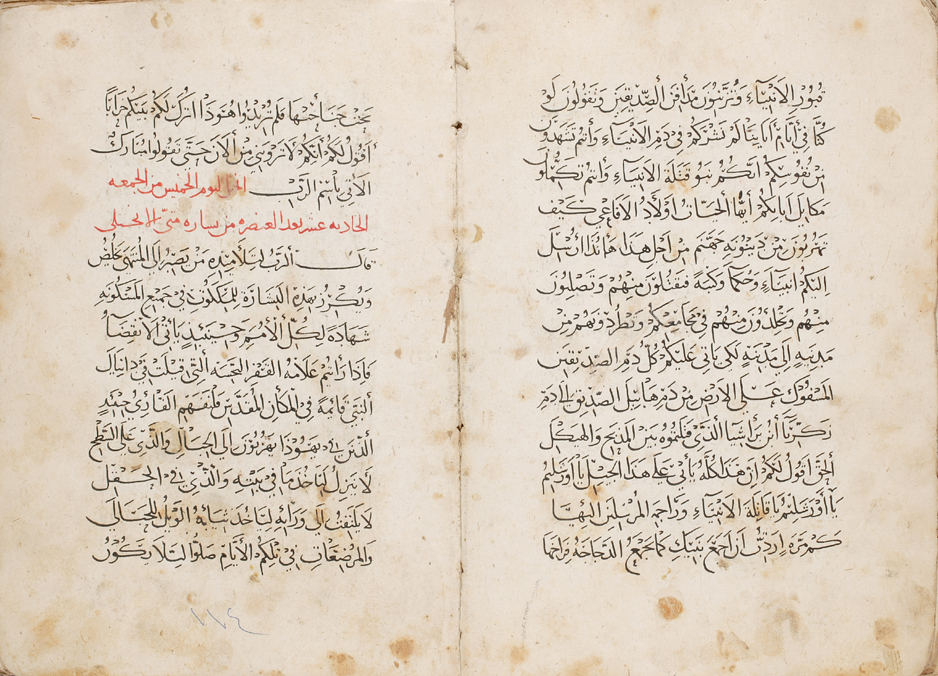 قبور الانبياء وتزينون مدافن الصديقين وتقولون لو
كنا في أيام ابائنا لم نشركهم في دم الانبياء وأنتم تشهدون
من نفوسكم انكم بنو قتلة الانبياء وانتم تكملوا
مكاييل ابائكم أيها الحيات اولاد الافاعي كيف
تهربون من دينونه جهنم من اجل هذا هانذا ارسل
اليكم انبياء وحكما وكتبة فتقتلون منهم وتصلبون
منهم وتجلدون منهم في مجامعكم وتطردونهم من
مدينه الى مدينه لكى ياتي عليكم كل دم الصديقين
المسفوك على الارض من دم هابيل الصديق الى دم
زكريا أبن براشيا الذي قتلتموه بين المذبح والهيكل
الحق اقول لكم ان هذا كله يأتي على هذا الجيل يا اورشليم
يا أورشليم يا قاتلة الانبياء وراجمه المرسلين اليها
كم مره اردت أن اجمع بنيك كما تجمع الدجاجة فراخها
تحت جناحها فلم تريدوا هوذا اترك لكم بيتكم خرابا
أقول لكم انكم لا تروني من ألان حتى تقولوا مبارك
الاتي بأسم الرب اليوم الخميس من الجمعه
الحاديه عشر بعد العنصره من بشاره متى الانجيلي
قال الرب لتلاميذه من يصبر الى المنتهى يخلص
ويكرز بهذه البشارة للملكوت في جميع المسكونه
شهادة لكل الأمم وحينيذ ياتي الانقضا
فاذا رايتم علامه القفر النجسه ألتي قيلت في دانيال
ألنبي قائمة في المكان المقدس فليفهم القارئ حينئذ
ألذين في يهوذا يهربون الى الجبال والذي على السطح
لا ينزل لياخذ ما في بيته والذي في الحقل
لا يلتفت الى ورايه لياخذ ثيابه الويل للحبالى
والمرضعات في تلك الأيام صلوا لئلا يكون
١١٤